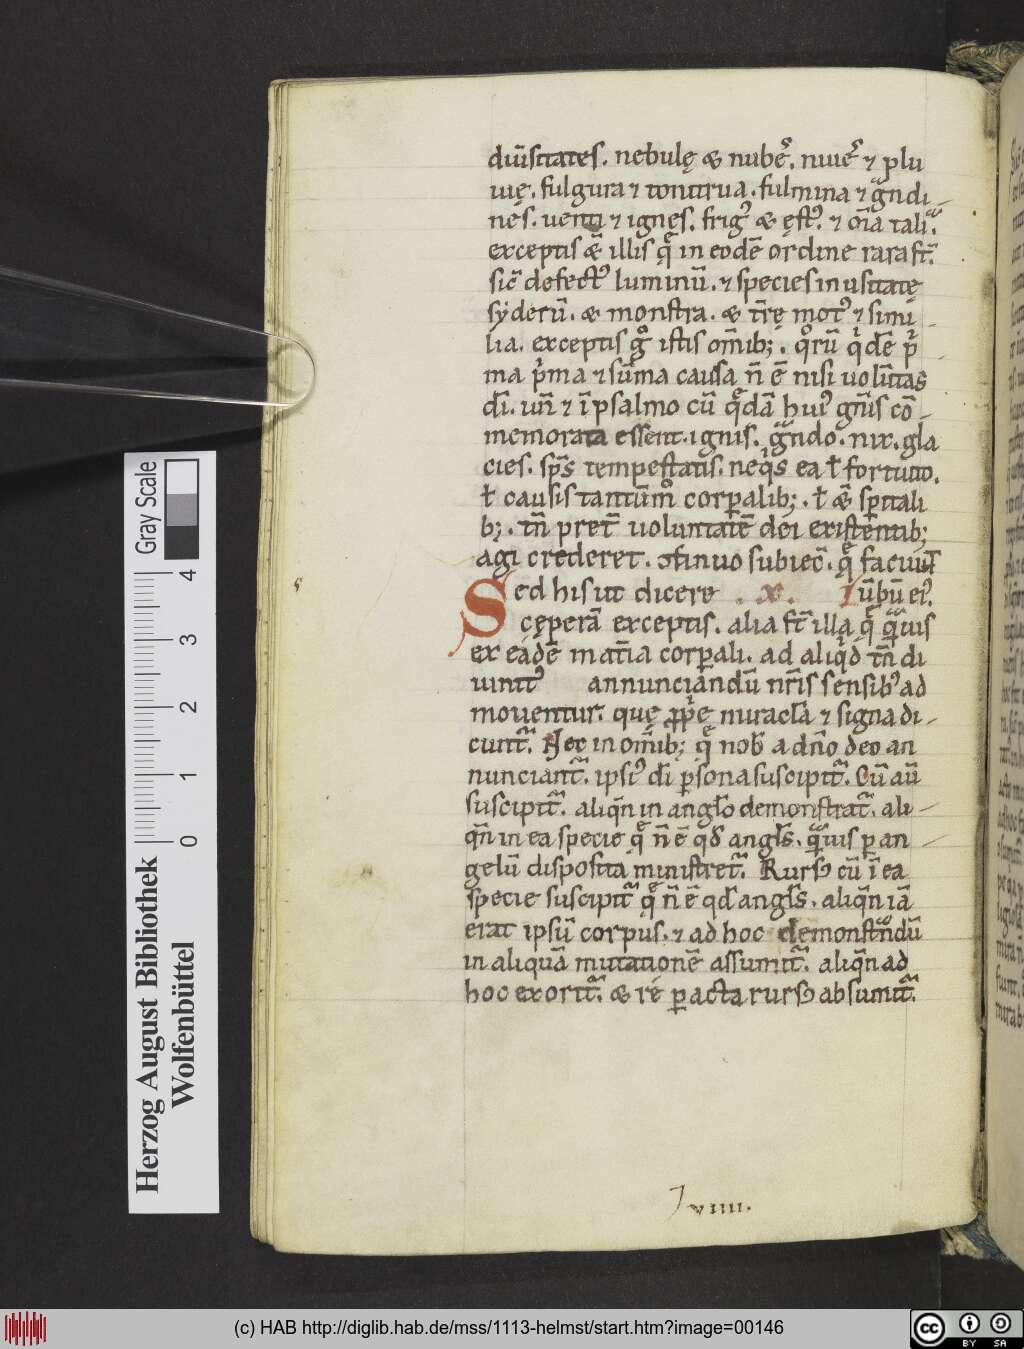 diuͥsitates. nebulę & nubeˢ. niueˢ ⁊ plu
uię. fulgura ⁊ tonitrua. fulmina ⁊ gͣndi-
nes. uenti ⁊ ignes. frigꝰ & ęstꝰ. ⁊ oīa talia.
exceptis & illis q̨ in eodē ordine rara st̄.
sic̄ defectꝰ luminū. ⁊ species inusitatę
syderū. & monstra. & t̄rę motꝰ ⁊ simi-
lia. exceptis gͦ istis om̄ibꝫ. qͦrū qͥdē pͥ-
ma pͥma ⁊ sūma causa n̄ ē nisi uolūtas
dī. un̄ ⁊ ī psalmo cū q̨dā huiꝰ gn̄is cō-
memorata essent. ignis. gͣndo. nix. gla
cies. sp̄s tempestatis. neqͥs ea ł fortuito.
ł causis tantūmͦ corꝑalibꝫ. ł & sp̄itali
bꝫ. tn̄ pret̄ uoluntatē dei existentibꝫ
agi crederet. ꝯtinuo subiec̄. q̨ faciūt
Sed his ut dicere .x. Vūbū eiꝰ.
cęperā exceptis. alia st̄ illa q̨ qͣuis
ex eadē mat̄ia corꝑali. ad aliqͥd tn̄ di
uinitꝰ annunciandū nr̄is sensibꝰ ad
mouentur. quę ꝓpͥe miracl̄a ⁊ signa di-
cunt᷑. Nec in om̄ibꝫ q̨ nob̄ a dn̄o deo an
nunciant᷑. ipsiꝰ dī ꝑsona suscipit᷑. Cū aū
suscipit᷑. aliqn̄ in angl̄o demonstrat᷑. ali-
qn̄ in ea specie q̨ n̄ ē qd̄ angl̄s. qͣuis ꝑ an-
gelū disposita ministret᷑. Rursꝰ cū ī ea
specie suscipit᷑ q̨ n̄ ē qd̄ angl̄s. aliqn̄ iā
erat ipsū corpus. ⁊ ad hoc demonstͣndū
in aliquā mutationē assumit᷑. aliqn̄ ad
hoc exorit᷑. & re ꝑacta rursꝰ absumit᷑.
viiii.
Gray Scale
4
3
2
1
0
Herzog August Bibliothek
Wolfenbüttel
(c) HAB http://diglib.hab.de/mss/1113-helmst/start.htm?image=00146
cc
BY
SA